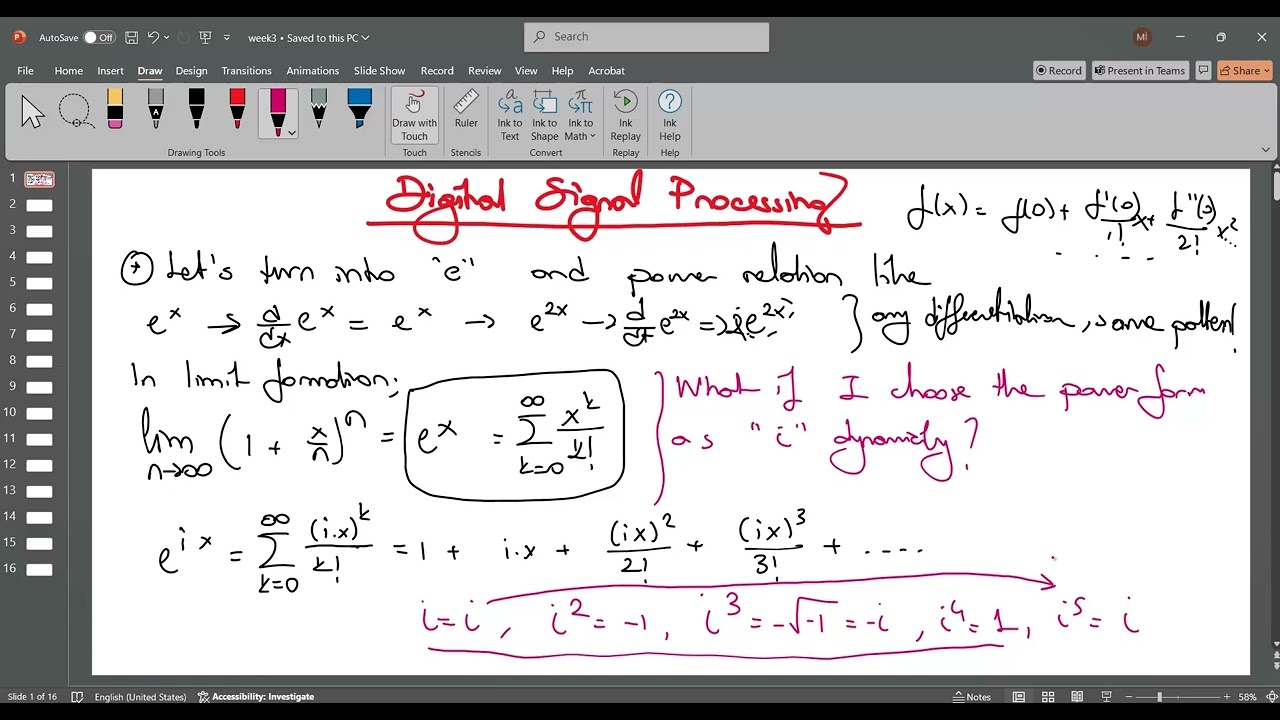 AutoSave Off week3 • Saved to this PC Search Mİ
File Home Insert Draw Design Transitions Animations Slide Show Record Review View Help Acrobat Record Present in Teams Share
Draw with Touch Ruler Ink to Text Ink to Shape Ink to Math Ink Replay Ink Help
Drawing Tools Touch Stencils Convert Replay Help
1
2
3
4
5
6
7
8
9
10
11
12
13
14
15
16
Digital Signal Processing
f(x) = f(0) + f'(0)/1! x + f''(0)/2! x² ...
. . . . - -
Let's turn into "e" and power relation like
e^x → d/dx e^x = e^x → e^2x → d/dx e^2x => 2e^2x } any differentiation, same pattern!
In limit formation:
lim n→∞ (1 + x/n)^n = e^x = ∑ k=0 ∞ x^k/k!
What if I choose the power form
as "i" dynamicly?
e^ix = ∑ k=0 ∞ (i.x)^k/k! = 1 + i.x + (ix)²/2! + (ix)³/3! + ....
i = i, i² = -1, i³ = -√-1 = -i, i⁴ = 1, i⁵ = i
Slide 1 of 16 English (United States) Accessibility: Investigate Notes 58%